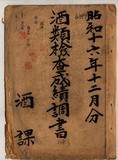 昭和十六年十二月分
酒類檢查成績調書
酒課